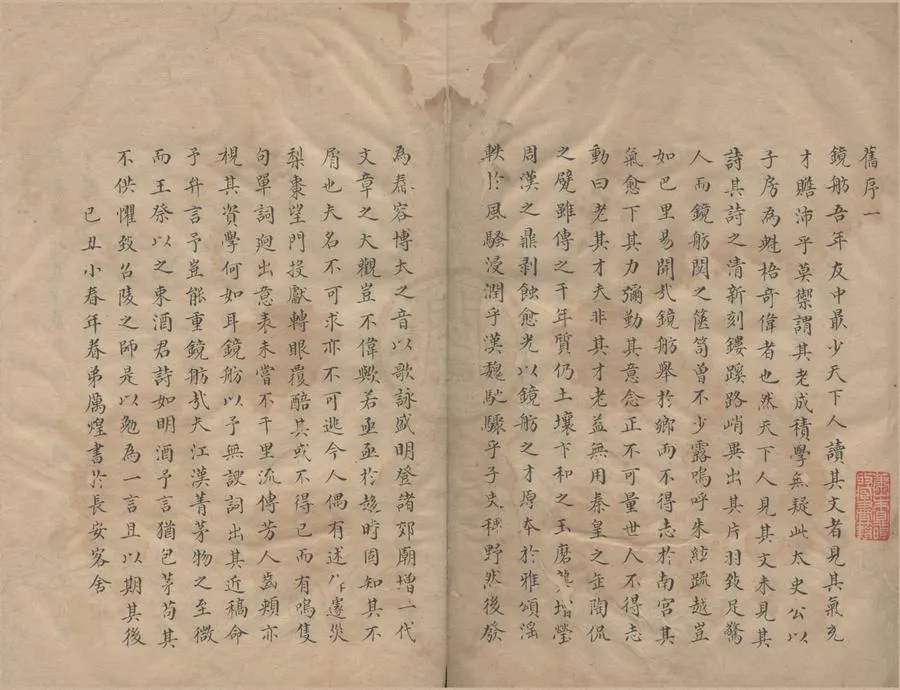 舊序一
鏡舫吾年友中最少天下人讀其文者見其氣充
才贍沛乎莫禦謂其老成積學無疑此太史公以
子房為魁梧奇偉者也然天下人見其文未見其
詩其詩之清新刻鏤蹊路峭異出其片羽致足驚
人而鏡舫閟之篋笥曾不少露嗚呼朱絃疏越豈
如巴里易聞哉鏡舫舉於鄉而不得志於南宮其
氣愈下其力彌勤其意念正不可量世人不得志
動曰老其才夫非其才老益無用秦皇之缶陶侃
之甓雖傳之千年質仍土壤卞和之玉磨礱增瑩
周漢之鼎剥蝕愈光以鏡舫之才原本於雅頌滛
軼於風騷浸潤乎漢魏馳驟乎子史稗野然後發
為舂容博大之音以歌詠盛明登諸郊廟增一代
文章之大觀豈不偉歟若亟亟於趍時固知其不
屑也夫名不可求亦不可逃今人偶有述作遽災
梨棗望門投獻轉眼覆醅其或不得已而有鳴隻
句單詞迥出意表未嘗不千里流傳芳人齒頰亦
視其資學何如耳鏡舫以予無諛詞出其近稿命
予弁言予豈能重鏡舫哉夫江漢菁茅物之至微
而王祭以之東酒君詩如明酒予言猶包茅苟其
不供懼致召陵之師是以勉為一言且以期其後
己丑小春年眷弟厲煌書於長安客舍